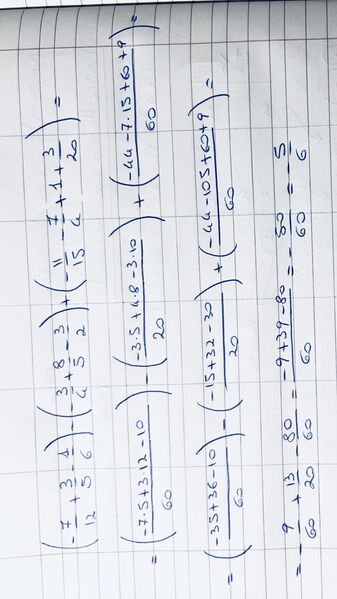 (-7/12 + 3/5 - 1/6) - (-3/4 + 8/5 - 3/2) + (-11/15 - 7/4 + 1 + 3/20) =
= (-7·5+3·12-10/60) - (-3·5+4·8-3·10/20) + (-44-7·15+60+9/60) =
= (-35+36-10/60) - (-15+32-30/20) + (-44-105+60+9/60) =
= -9/60 + 13/20 - 80/60 = -9+39-80/60 = -50/60 = -5/6